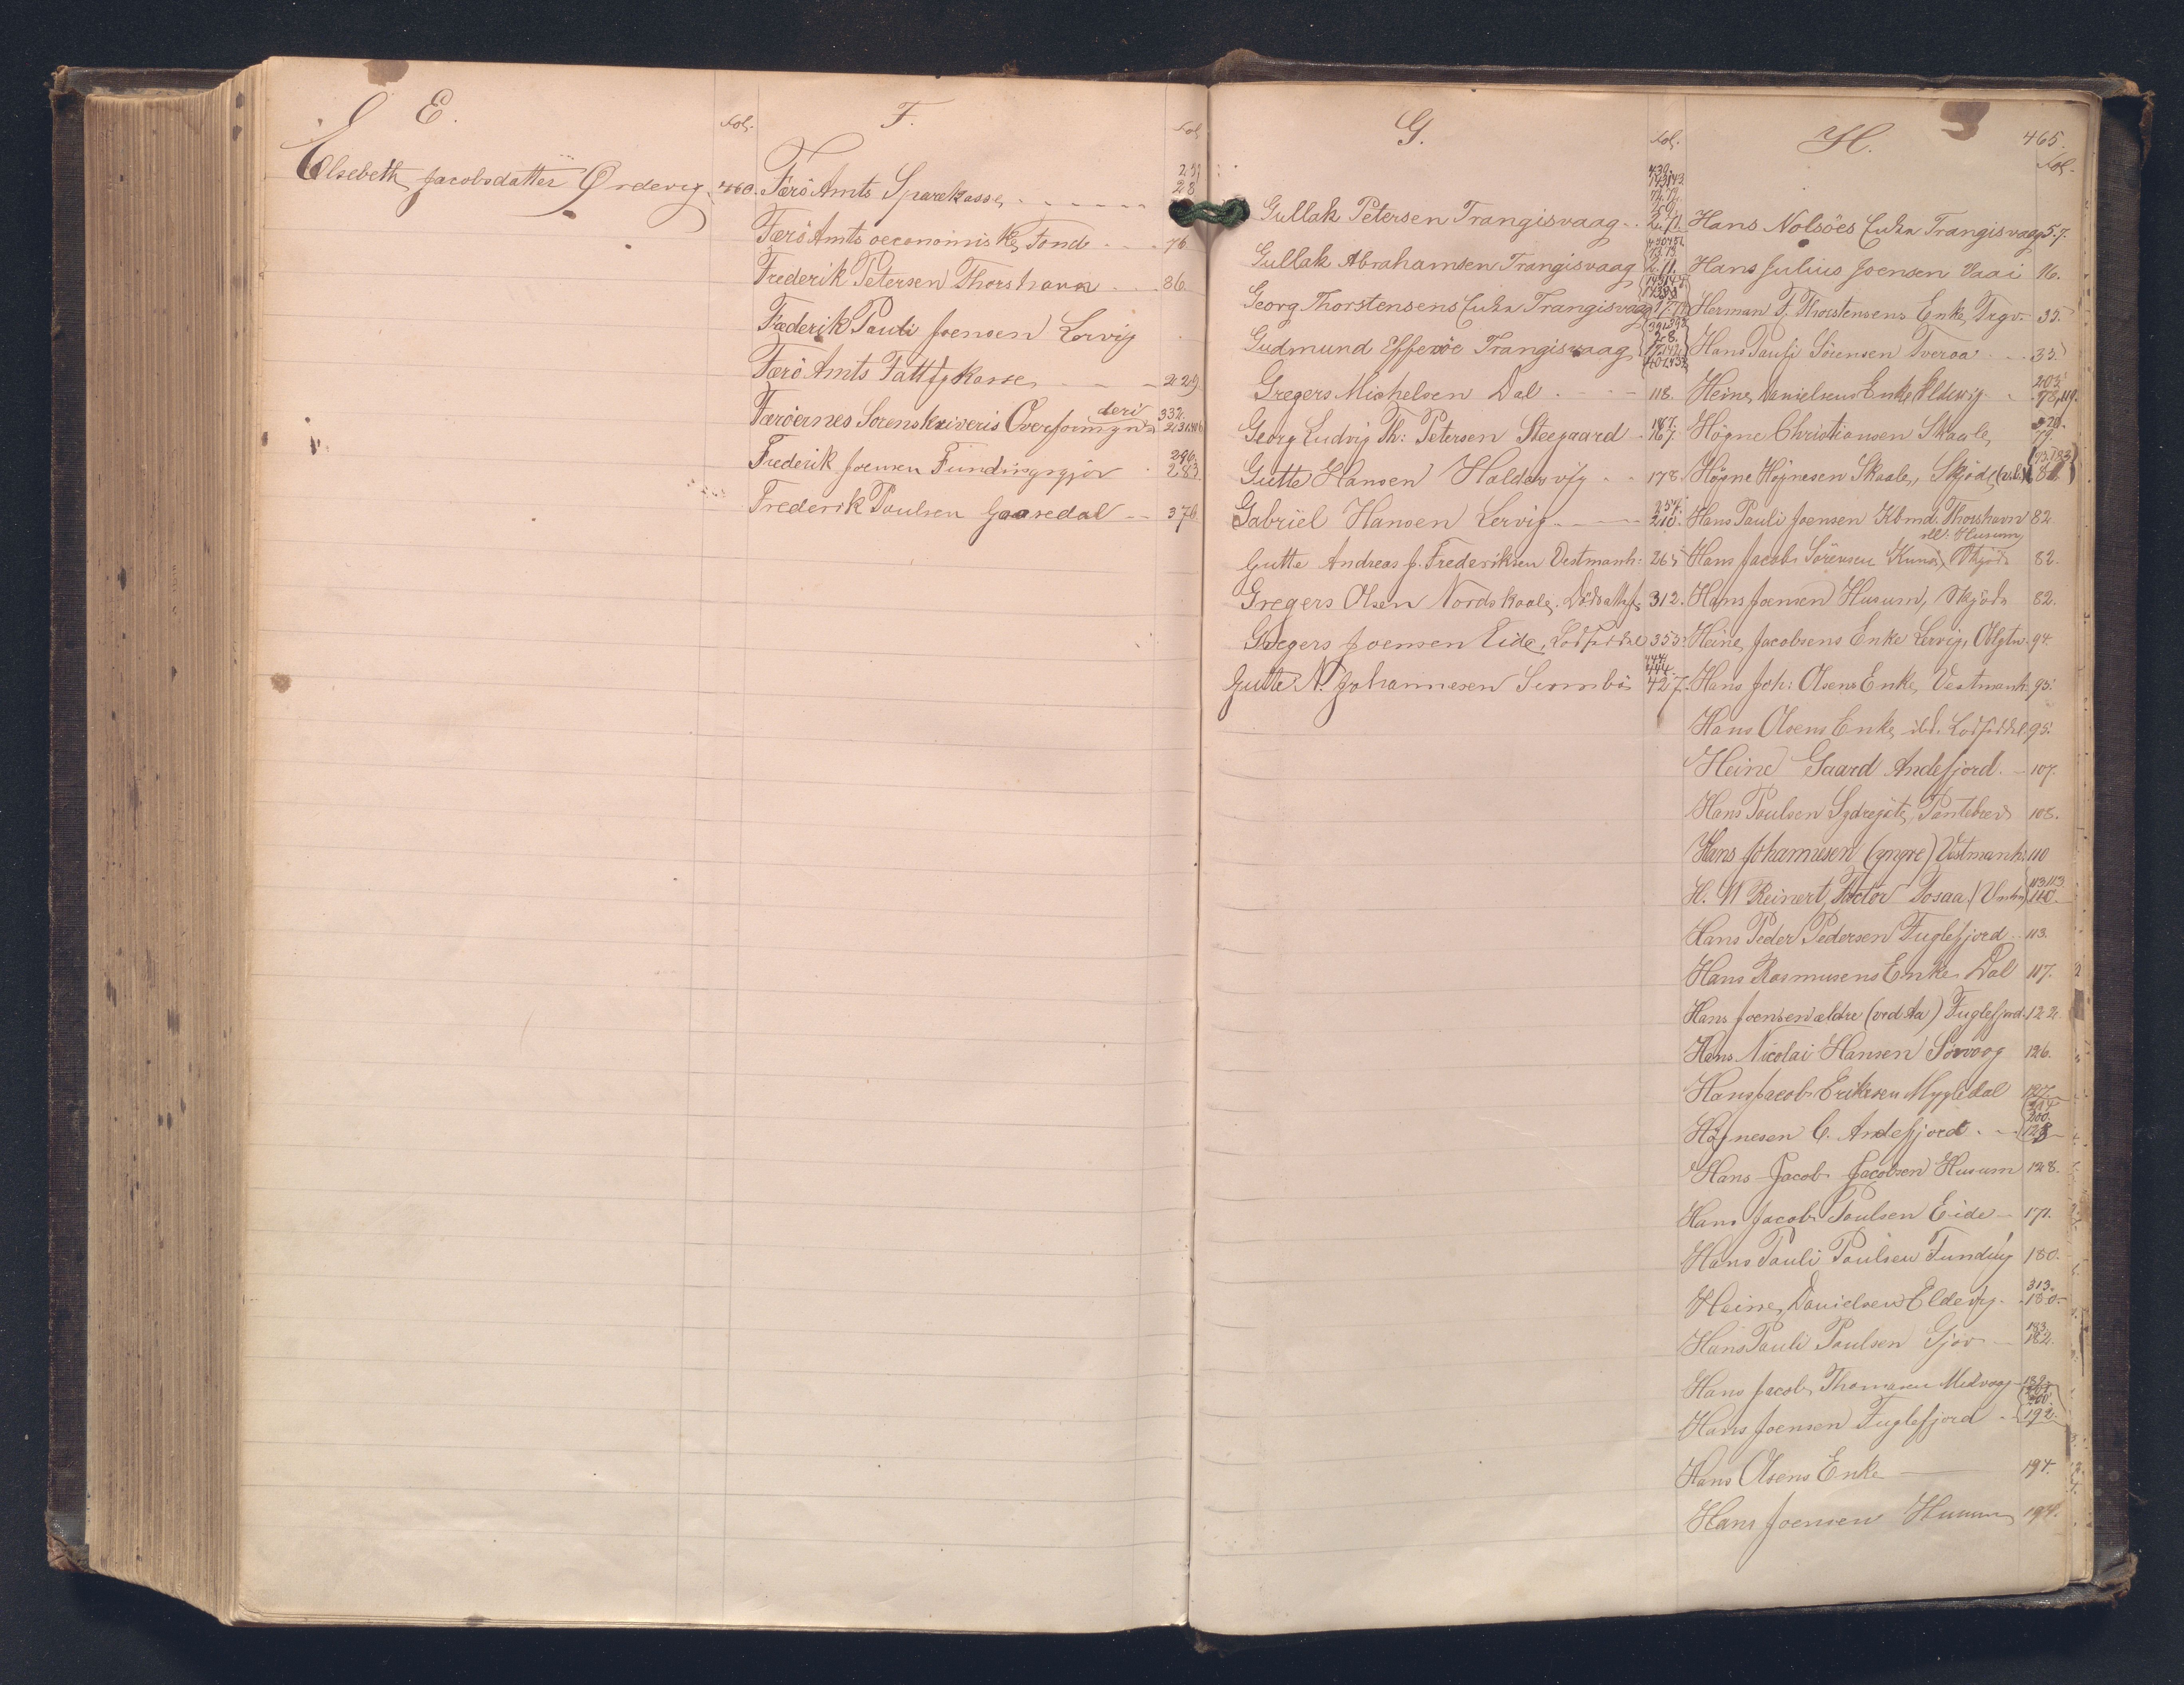 E.
Fol.
Elsebeth Jacobsdatter Ördevig 460.
F.
Fol.
Færö Amts Sparekasse 28
Færö Amts oeconomiske Fond 76
Frederik Petersen Thorshavn 86
Frederik Pauli Joensen Lervig
Færö Amts Fattigkasse 229.
deri 332.
Færöernes Sorenskriveris Overformyn
296.
Frederik Joensen Fundingsgjov 283.
Frederik Poulsen Gaasedal 376
G.
Fol.
Gullak Petersen Trangisvaag 2.11.
Gullak Abrahamsen Trangisvaag 2.11.
Georg Thorstensens Enke Trangisvaag
Gudmund Effersöe Trangisvaag
Gregers Michelsen Dal 118.
187.
Georg Ludvig Th: Petersen Steegaard 167.
Gutte Hansen Haldersvig 178.
257.
Gabriel Hansen Lervig 210.
Gutte Andreas J. Frederiksen Vestmanh: 265
Gregers Olsen Nordskaale, 312.
Gregers Joensen Eide, 353.
444.
Gutte N. Johannesen Sumbö 427.
H.
465.
Fol.
Hans Nolsöes Enke Trangisvaag 5.7.
Hans Julius Joensen Vaai 16.
Herman T. Thorstensens Enke, Trgv. 35.
Hans Pauli Sörensen Tveraa 35.
203.
Heine Danielsens Enke Eldevig 78,119.
320.
Högne Christiansen Skaale, 79.
Högne Höjnesen Skaale, Skjöde
Hans Pauli Joensen Kbmd. Thorshavn 82.
Hans Jacob Sörensen Kunö, Skjöde 82.
Hans Joensen Husum, Skjöde 82.
Heine Jacobsens Enke Lervig, Oblgtn. 94.
Hans Joh: Olsens Enke, Vestmanh. 95.
Hans Olsens Enke ibd. 95.
Heine Gaard Andefjord. 107.
Hans Poulsen Sydregöte, Pantebrev 108.
Hans Johannesen (yngre) Vestmanh. 110
113.113.
H. N Reinert, Factor Tosaa (Vmhn) 110.
Hans Peder Pedersen Fuglefjord 113.
Hans Rasmusens Enke Dal 117.
Hans Joensen ældre (ved Aa) Fuglefjord. 122.
Hans Nicolai Hansen Sörvaag 126.
Hans Jacob Eriksen Mygledal 127.
200.
Höjnesen C. Andefjord 128
Hans Jacob Jacobsen Husum 128.
Hans Jacob Poulsen Eide 171.
Hans Pauli Poulsen Funding 180.
313.
Heine Danielsen Eldevig 180.
183.
Hans Pauli Poulsen Gjov 182.
Hans Jacob Thomasen Midvaag 189.
200.
Hans Joensen Fuglefjord 192.
Hans Olsens Enke 194.
Hans Joensen Husum 194.